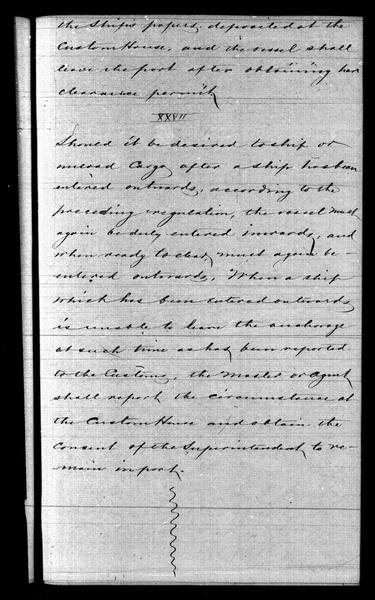 the Ship's papers, deposited at the
Custom House, and the vessel shall
leave the port after obtaining her
clearance permit.
XXVII
Should it be desired to ship or
unload Cargo after a ship has been
entered outwards, according to the
preceding regulation, the vessel must
again be duly entered inwards, and
when ready to clear, must again be
entered outwards. When a ship
which has been entered outwards
is unable to leave the anchorage
at such time as has been reported
to the Customs, the Master or Agent
shall report the circumstance at
the Custom House and obtain the
Consent of the Superintendent to re-
main in port.